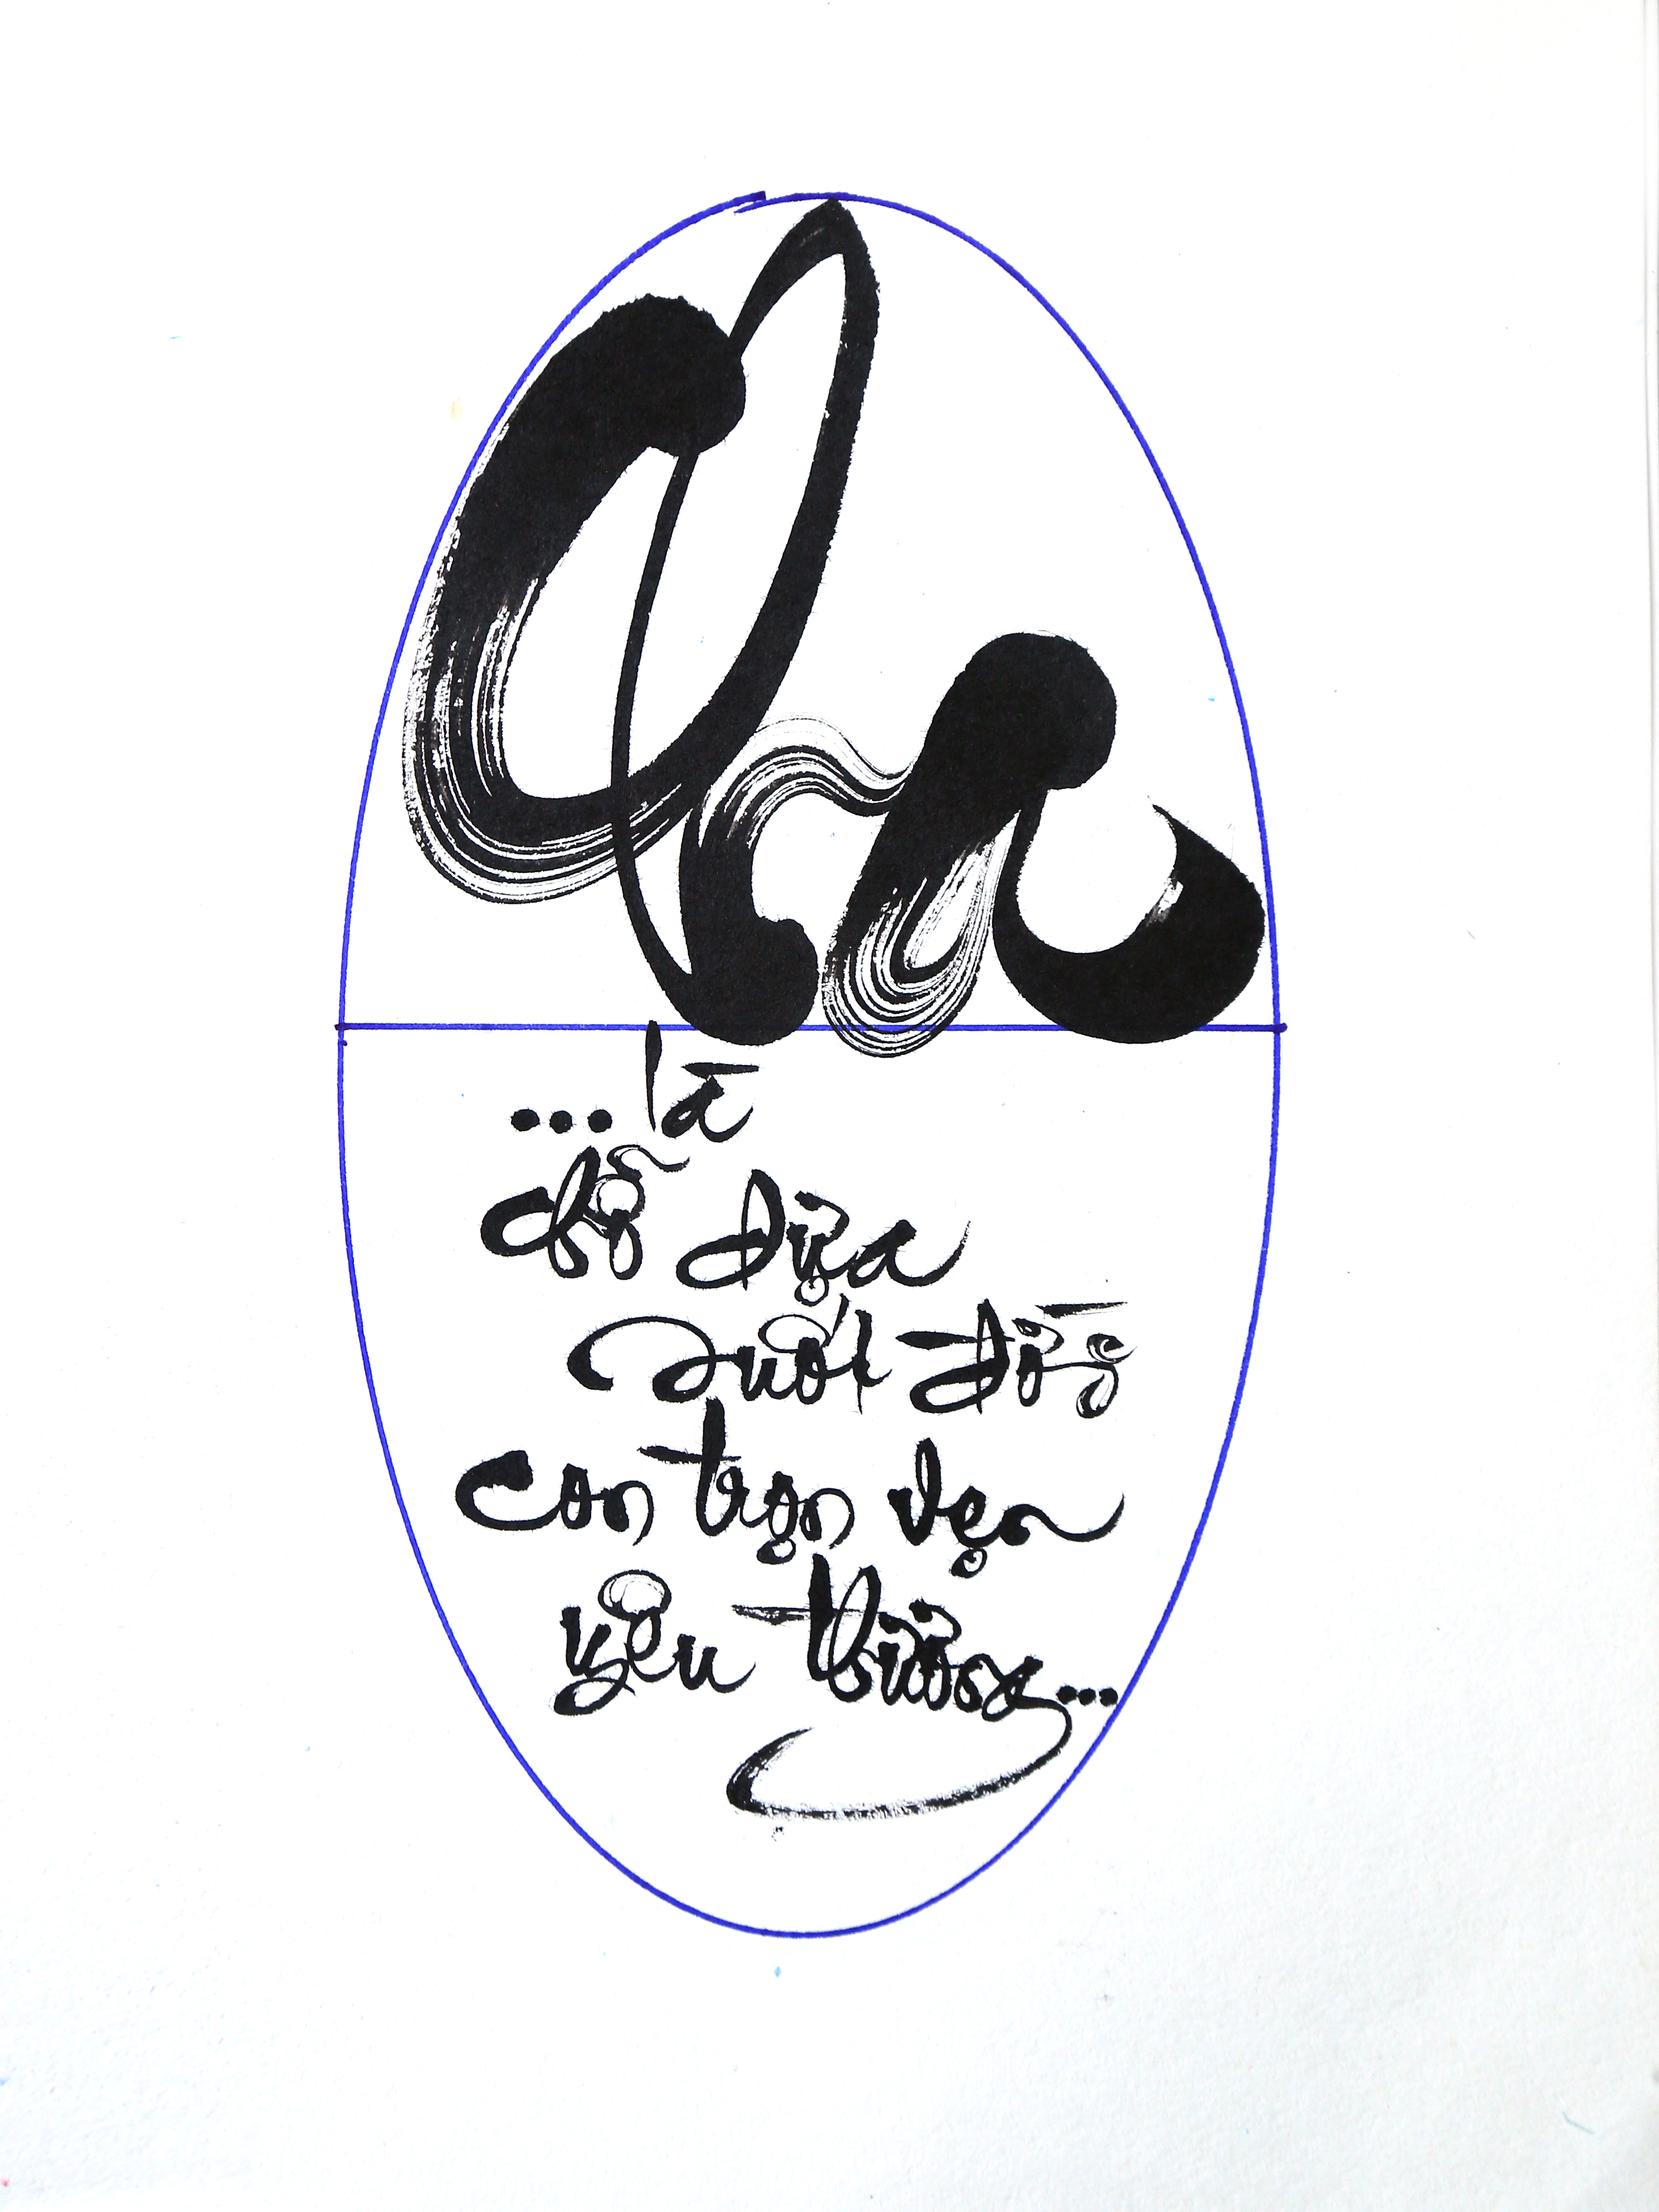 Cha
...là
chỗ dựa
suốt đời
con trọn vẹn
yêu thương...